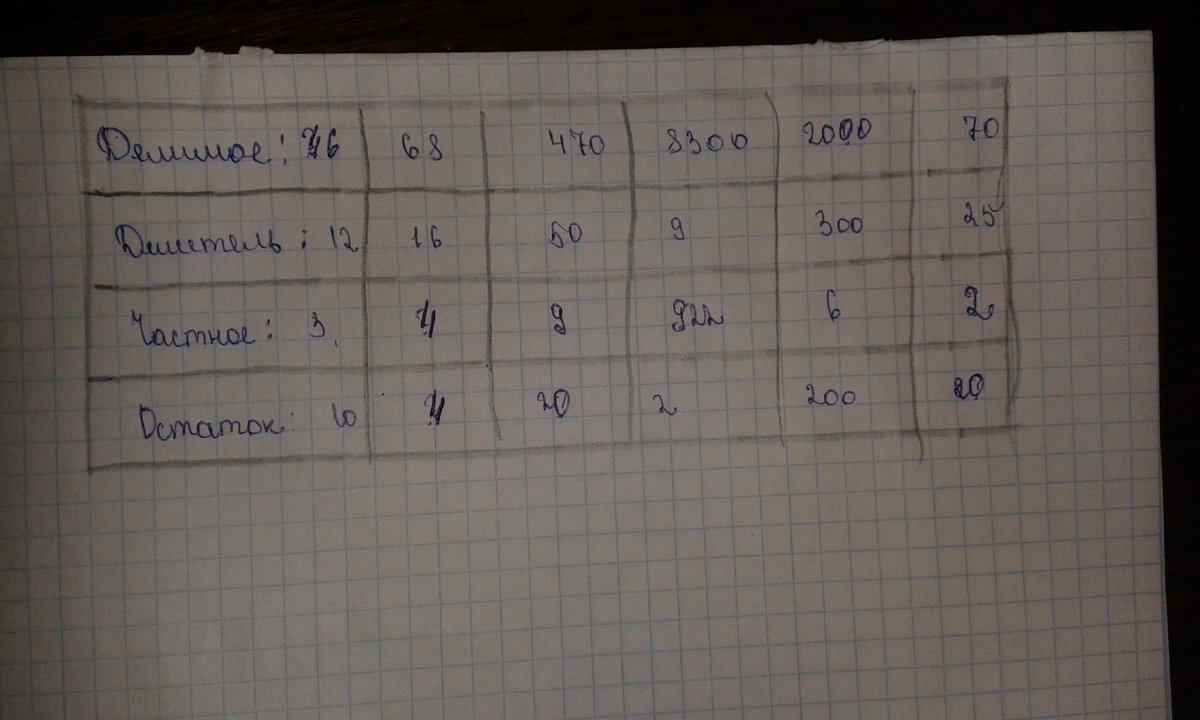 Делимое: 46 68 470 8300 2000 70
Делитель: 12 16 50 9 300 25
Частное: 3 4 9 922 6 2
Остаток: 10 4 20 2 200 20